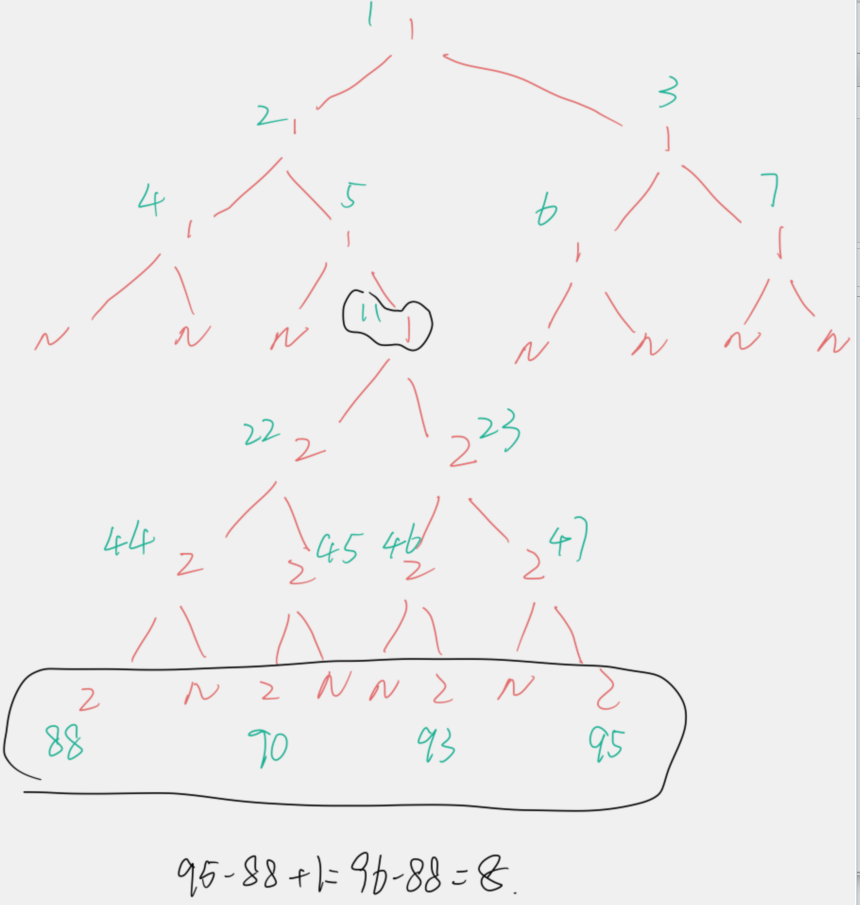 1
1
2 1
3
1
4
1
5
1
6
1
7
1
N N N 11 1 N N N N
22 2 2 23
44 2 2 45 46 2 2 47
2 N 2 N N 2 N 2
88 90 93 95
95-88+1=96-88=8.